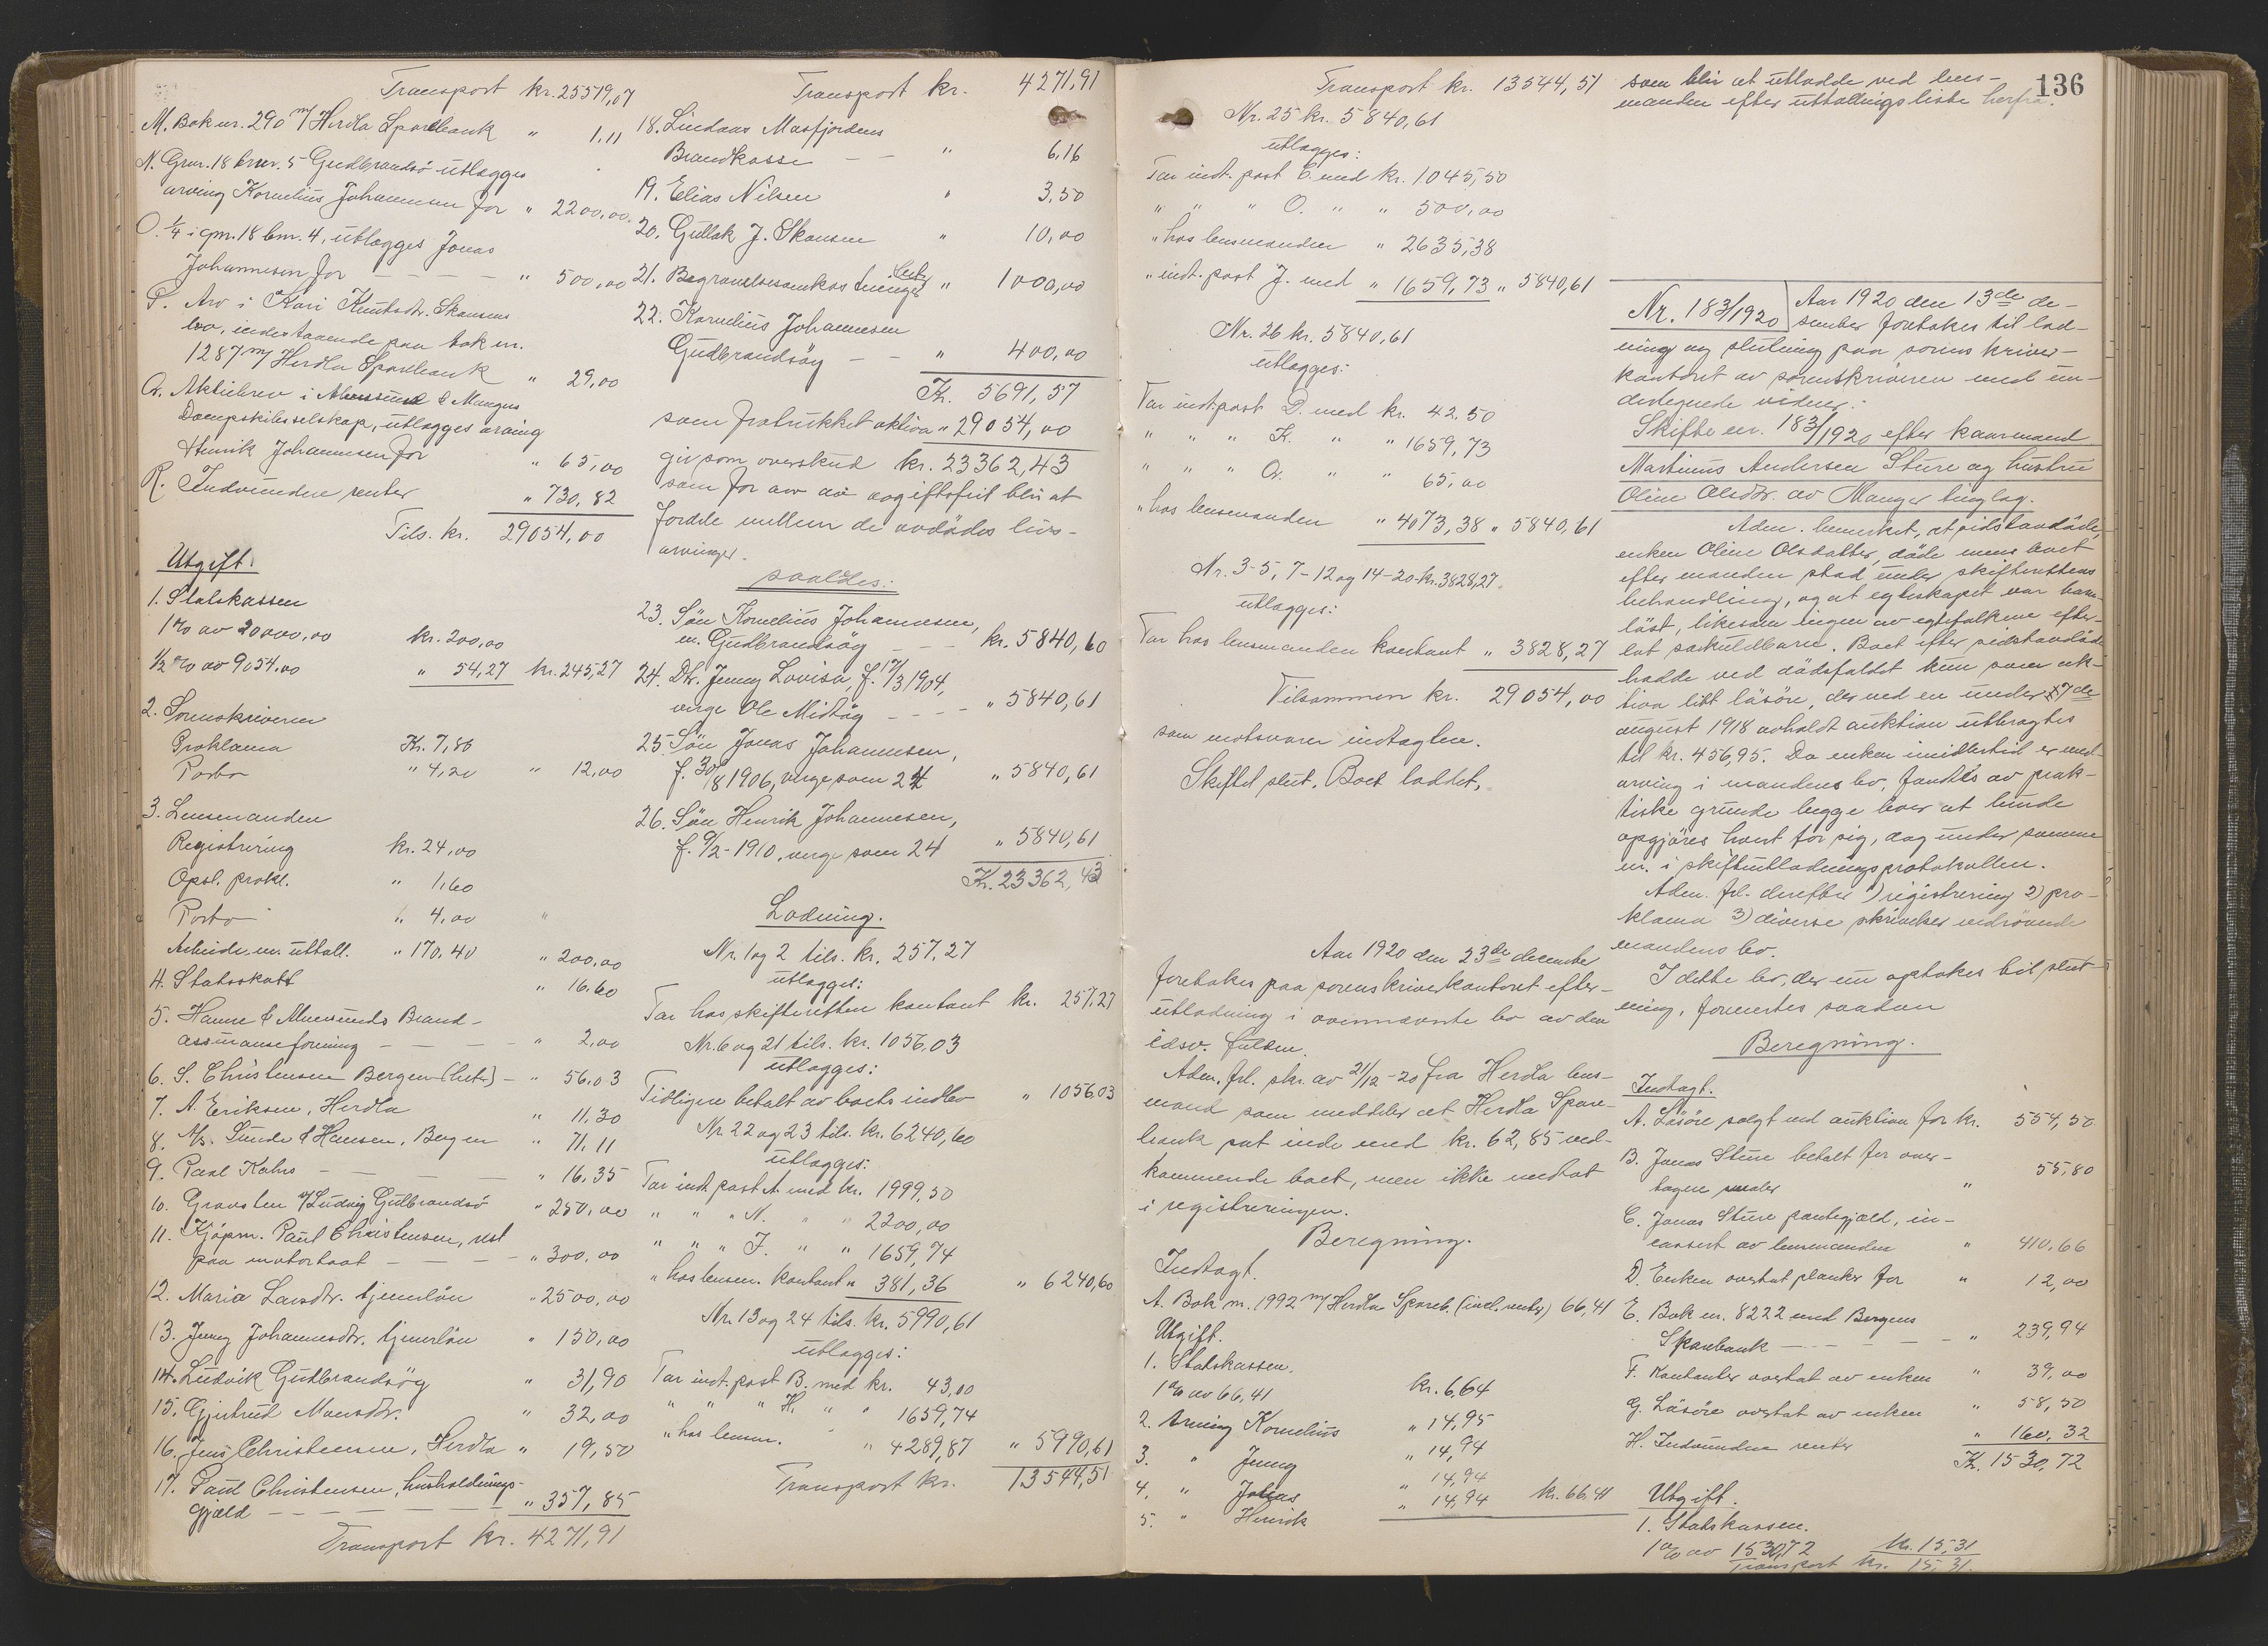 Transport kr. 25579,07
M. Bok nr. 290 m/ Herdla Sparebank " 1,11
N. Grnr. 18 brnr. 5 Gudbrandsö utlægges
arving Kornelius Johannesen for " 2200,00
O. 1/4 i gnr. 18 bnr. 4, utlægges Jonas
Johannesen for - - - - " 500,00
P. Arv i Kari Knutsdtr. Skansens
bo, indestaaende paa bok nr.
1287 m/ Herdla Sparebank " 29,00
Q. Aktiebrev i & Manger
Dampskibsselskap, utlægges arving
Henrik Johannesen for " 65,00
R. Indvundne renter " 730,82
Tils. kr. 29054,00
Utgift.
1. Statskassen
1 % av 20000,00 kr. 200,00
1/2 % av 9054,00 " 54,27 kr. 245,27
2. Sorenskriveren
Proklama Kr. 7,80
Porto " 4,20 " 12,00
3. Lensmanden
Registrering kr. 24,00
Opsl. prokl. " 1,60
Porto " 4,00 "
Arbeide m. uttall. " 170,40 " 200,00
4. Statsskatt " 16,60
5. Hamre & Brand-
assuranseforening - - - " 2,00
6. S. Christensen Bergen - " 56,03
7. A. Eriksen, Herdla " 11,30
8. A/s. Sunde & Hansen, Bergen " 71,11
9. Paal Kahrs - - - " 16,35
10. Gravsten v/ Ludvig Gulbrandsö " 250,00
11. Kjöpm. Paul Christensen, rest
paa motorbaat - - - " 300,00
12. Maria Larsdtr. tjenerlön " 2500,00
13. Jenny Johannesdtr. tjenerlön " 150,00
14. Ludvik Gulbrandsöy " 31,90
15. Gjertrud Monsdtr. " 32,00
16. Jens Christensen, Herdla " 19,50
17. Paul Christensen, husholdnings-
gjæld - - - - - " 357,85
Transport kr. 4271,91
Transport kr. 4271,91
18. Lindaas Masfjordens
Brandkasse - - " 6,16
19. Elias Nilsen " 3,50
20. Gullak J. Skansen " 10,00
21. Begravelsesomkostninger " 1000,00
22. Kornelius Johannesen
Gudbrandsöy - - " 400,00
Kr. 5691,57
som fratrukket aktiva " 29054,00
gir som overskud kr. 23362,43
som for arv avgiftsfrit blir at
fordele mellem de avdödes livs-
arvinger.
saaledes:
23. Sön Kornelius Johannesen,
m. Gudbrandsöy - - - kr. 5840,60
24. Dtr. Jenny Lovisa, f. 17/3 1904,
verge Ole Midtöy - - - - " 5840,61
25. Sön Jonas Johannesen,
f. 30/8 1906, verge som 24 " 5840,61
26. Sön Henrik Johannesen,
f. 9/2 - 1910, verge som 24 " 5840,61
Kr. 23362,43
Lodning.
Nr. 1 og 2 tils. kr. 257,27
utlægges:
Tar hos skifteretten kontant kr. 257,27
Nr. 6 og 21 tils. kr. 1056,03
utlægges:
Tidligere betalt av boets indlev " 1056,03
Nr. 22 og 23 tils. kr. 6240,60
utlægges:
Tar indt. post A. med kr. 1999,50
" " " N. " " 2200,00
" " " F. " " 1659,74
" hos lensm. kontant " 381,36 " 6240,60
Nr. 13 og 24 tils. kr. 5990,61
utlægges:
Tar indt. post B. med kr. 43,00
" " " H. " " 1659,74
" hos lensm. " " 4289,87 " 5990,61
Transport kr. 13544,51
Transport kr. 13544,51
Nr. 25 kr. 5840,61
utlægges:
Tar indt. post C. med kr. 1045,50
" " " O. " " 500,00
" hos lensmanden " 2635,38
" indt. post J. med " 1659,73 " 5840,61
Nr. 26 kr. 5840,61
utlægges:
Tar indt. post D. med kr. 42,50
" " " K. " " 1659,73
" " " Q. " " 65,00
" hos lensmanden " 4073,38 " 5840,61
Nr. 3-5, 7-12 og 14-20 kr. 3828,27
utlægges:
Tar hos lensmanden kontant " 3828,27
Tilsammen kr. 29054,00
som motsvarer indtægten.
Skiftet slut. Boet loddet,
Aar 1920 den 23de december
foretokes paa sorenskriverkontoret efter-
utlodning i ovennævnte bo av den
edsv. fuldm.
Adm. frl. skr. av 21/12-20 fra Herdla lens-
mand som meddeler at Herdla Spare-
bank sat inde med kr. 62,85 ved-
kommende boet, men ikke medtat
i registreringen.
Beregning.
Indtægt.
A. Bok nr. 1992 m/ Herdla Spareb. (incl. renter) 66,41
Utgift.
1. Statskassen.
1 % av 66,41 kr. 6,64
2. Arving Kornelius " 14,95
3. " Jenny " 14,94
4. " Jonas " 14,94
5. " Henrik " 14,94 kr. 66,41
136
som blir at utlodde ved lens-
manden efter uttallingsliste herfra.
Nr. 183/1920 Aar 1920 den 13de de-
sember foretokes til lod-
ning og slutning paa sorenskriver-
kontoret av sorenskriveren med un-
dertegnede vidner:
Skifte nr. 183/1920 efter kaarmand
Martinus Andersen Sture og hustru
Oline Olsdtr. av Manger tinglag.
Adm. bemerket, at sidstavdöde,
enken Oline Olsdatter, döde mens boet
efter manden stod under skifterettens
behandling, og at egteskapet var barn-
löst, likesom ingen av egtefolkene efter-
lot særkuldbarn. Boet efter sidstavdöde
hadde ved dödsfaldet kun som ak-
tiva litt lösöre, der ved en under 17de
august 1918 avholdt auktion utbragtes
til kr. 456,95. Da enken imidlertid er med-
arving i mandens bo, fandtes av prak-
tiske grunde begge boer at kunde
opgjöres hvert for sig, dog under samme
nr. i skifteutlodningsprotokollen.
Adm. frl. derefter 1) registrering 2) pro-
klama 3) diverse skrivelser vedrörende
mandens bo.
I dette bo, der nu optokes til slut-
ning, formertes saadan
Beregning.
Indtægt.
A. Lösöre solgt ved auktion for kr. 554,50
B. Jonas Sture betalt for over-
tagne " 55,80
C. Jonas Sture pantegjæld, in-
cassert av lensmanden " 410,66
D. Enken overtat planker for " 12,00
E. Bok nr. 8222 med Bergens
Sparebank - - - " 239,94
F. Kontanter overtat av enken " 39,00
G. Lösöre overtat av enken " 58,50
H. Indvundne renter " 160,32
Kr. 1530,72
Utgift.
1. Statskassen.
1 % av 1530,72 kr. 15,31
Transport kr. 15,31